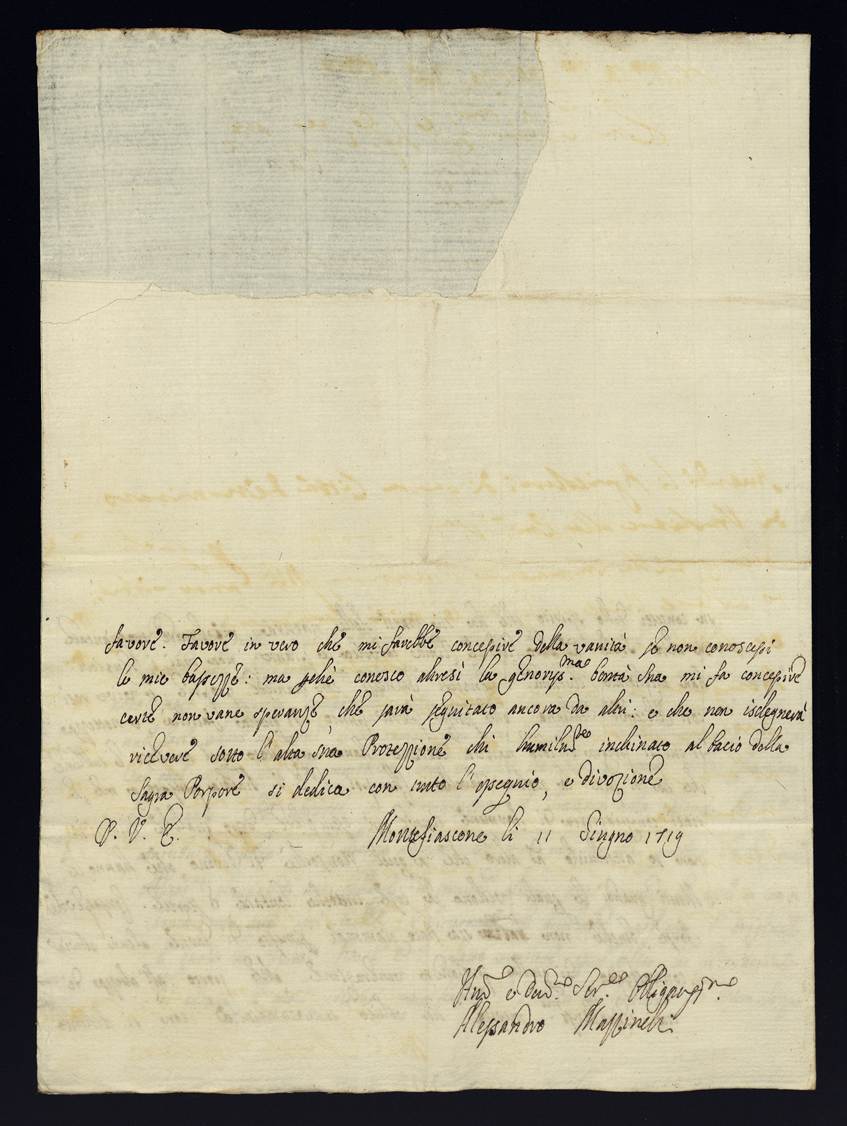 favore. Favore in vero che mi farebbe concepire della vanità se non conoscessi
le mie bassezze: ma perchè conosco altresì la generosis.ma bontà sua mi fa concepire
certe non vane speranze, che sarà seguitato ancora da altri: e che non isdegnerà
ricevere sotto l'alta sua Protezzione chi humilm.e inchinato al bacio della
Sagra Porpora si dedica con tutto l'ossequio, e divozione
D. V. E. Montefiascone li 11 Giugno 1719
Hum.o e Dev.o Ser.e Obligatiss.mo
Alessandro Mazzinelli